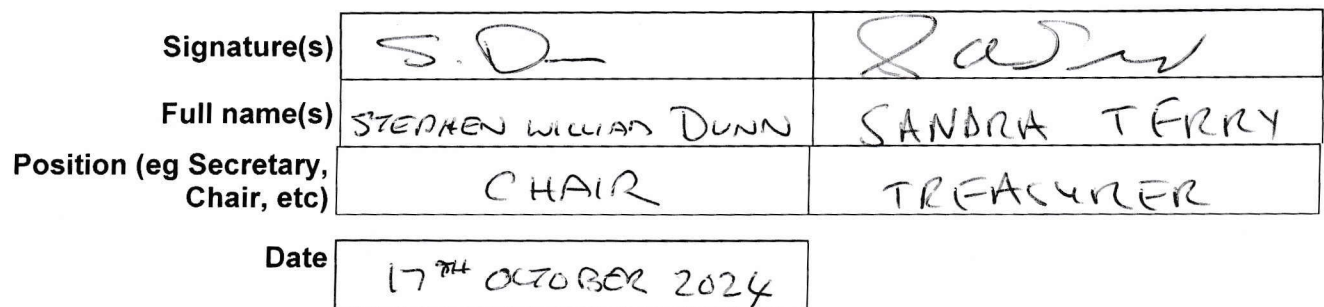 Signature(s) S. D
Full name(s) STEPHEN WILLIAM DUNN SANDRA TERRY
Position (eg Secretary,
Chair, etc) CHAIR TREASURER
Date 17TH OCTOBER 2024